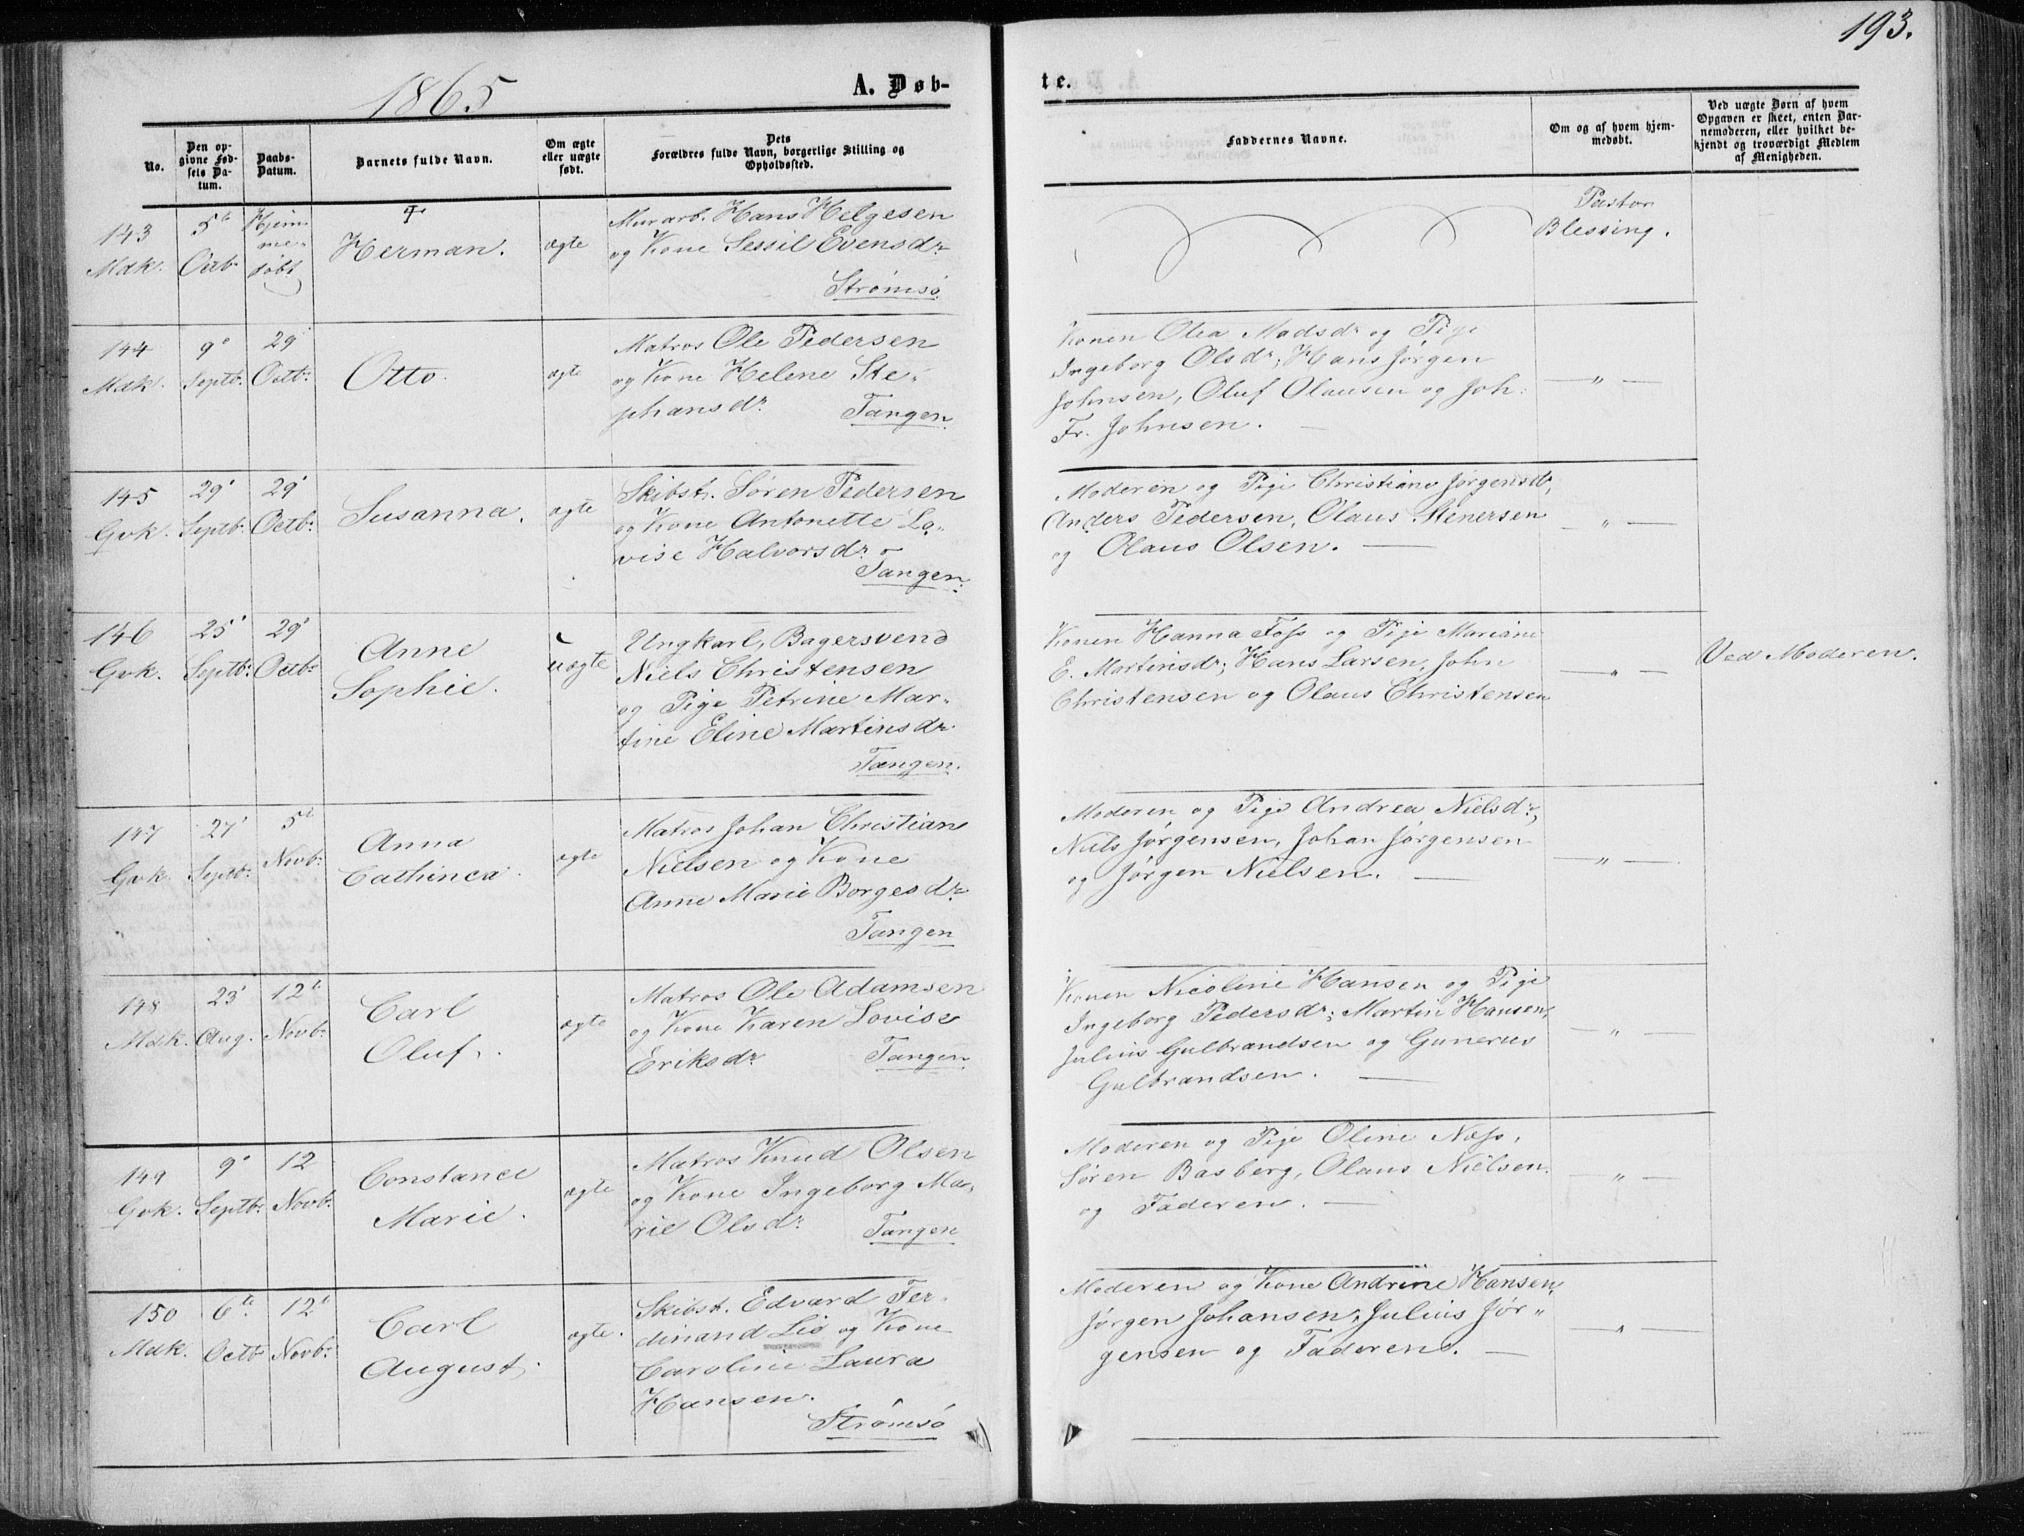 193.
1865
A. Døb-
te.
No.
Den op-
givne Fød-
sels Da-
tum.
Daabs-
Datum.
Barnets fulde Navn.
Om ægte
eller uægte
født.
Dets
Forældres fulde Navn, borgerlige Stilling og
Opholdssted.
Faddernes Navne.
Om og af hvem hjem-
medøbt.
Ved uægte Børn af hvem
Opgaven er skeet, enten Bar-
nemoderen, eller hvilket be-
kjendt og troværdigt Medlem
af Menigheden.
143
Mdk.
5te
Octb.
Hjem-
me-
døbt
Herman.
ægte
Murarb. Hans Helgesen
og Kone Sessil Evensdr
Strømsø
Pastor
Blessing.
144
Mdk.
9e
Septb:
29
Octb:
Otto.
ægte
Matros Ole Pedersen
og Kone Helene Ste-
phansdr.
Tangen.
Konen Olea Madsdr og Pige
Ingeborg Olsdr, Hans Jørgen
Johnsen, Oluf Olausen og Joh.
Fr. Johnsen. —
— " —
145
Gvk.
29'
Septb.
29'
Octb:
Susanna.
ægte
Skibst. Søren Pedersen
og Kone Antonette Lo-
vise Halvorsdr
Tangen.
Moderen og Pige Christiane Jørgensdr,
Anders Pedersen, Olaus Stenersen
og Olaus Olsen. —
— " —
146
Gvk.
25'
Septb:
29'
Octb:
Anne
Sophie.
uægte
Ungkarl, Bagersvend
Niels Christensen
og Pige Petrine Mar-
tine Eline Martinsdr
Tangen.
Konen Hanna Foss og Pige Mariane
E. Martinsdr; Hans Larsen, John
Christensen og Olaus Christensen
— " —
Ved Moderen.
147
Gvk.
27'
Septb:
5te
Novb:
Anna
Cathinca.
ægte
Matros Johan Christian
Nielsen og Kone
Anne Marie Borgesdr.
Tangen
Moderen og Pige Andrea Nielsdr,
Niels Jørgensen, Johan Jørgensen
og Jørgen Nielsen. —
— " —
148
Mdk.
23'
Aug.
12te
Novb:
Carl
Oluf.
ægte
Matros Ole Adamsen
og Kone Karen Lovise
Eriksdr.
Tangen
Konen Nicoline Hansen og Pige
Ingeborg Pedersdr; Martin Hansen,
Julius Gulbrandsen og Gunerus
Gulbrandsen. —
— " —
149
Gvk.
9'
Septb:
12
Novb:
Constance
Marie.
ægte
Matros Knud Olsen
og Kone Ingeborg Ma-
rie Olsdr.
Tangen
Moderen og Pige Oline Næss,
Søren Basberg, Olaus Nielsen
og Faderen. —
— " —
150
Mdk.
6te
Octb:
12te
Novb:
Carl
August.
ægte.
Skibst. Edvard Fer-
dinand Lie og Kone
Caroline Laura
Hansen.
Strømsø
Moderen og Kone Andrine Hansen,
Jørgen Johansen, Julius Jør-
gensen og Faderen. —
— " —